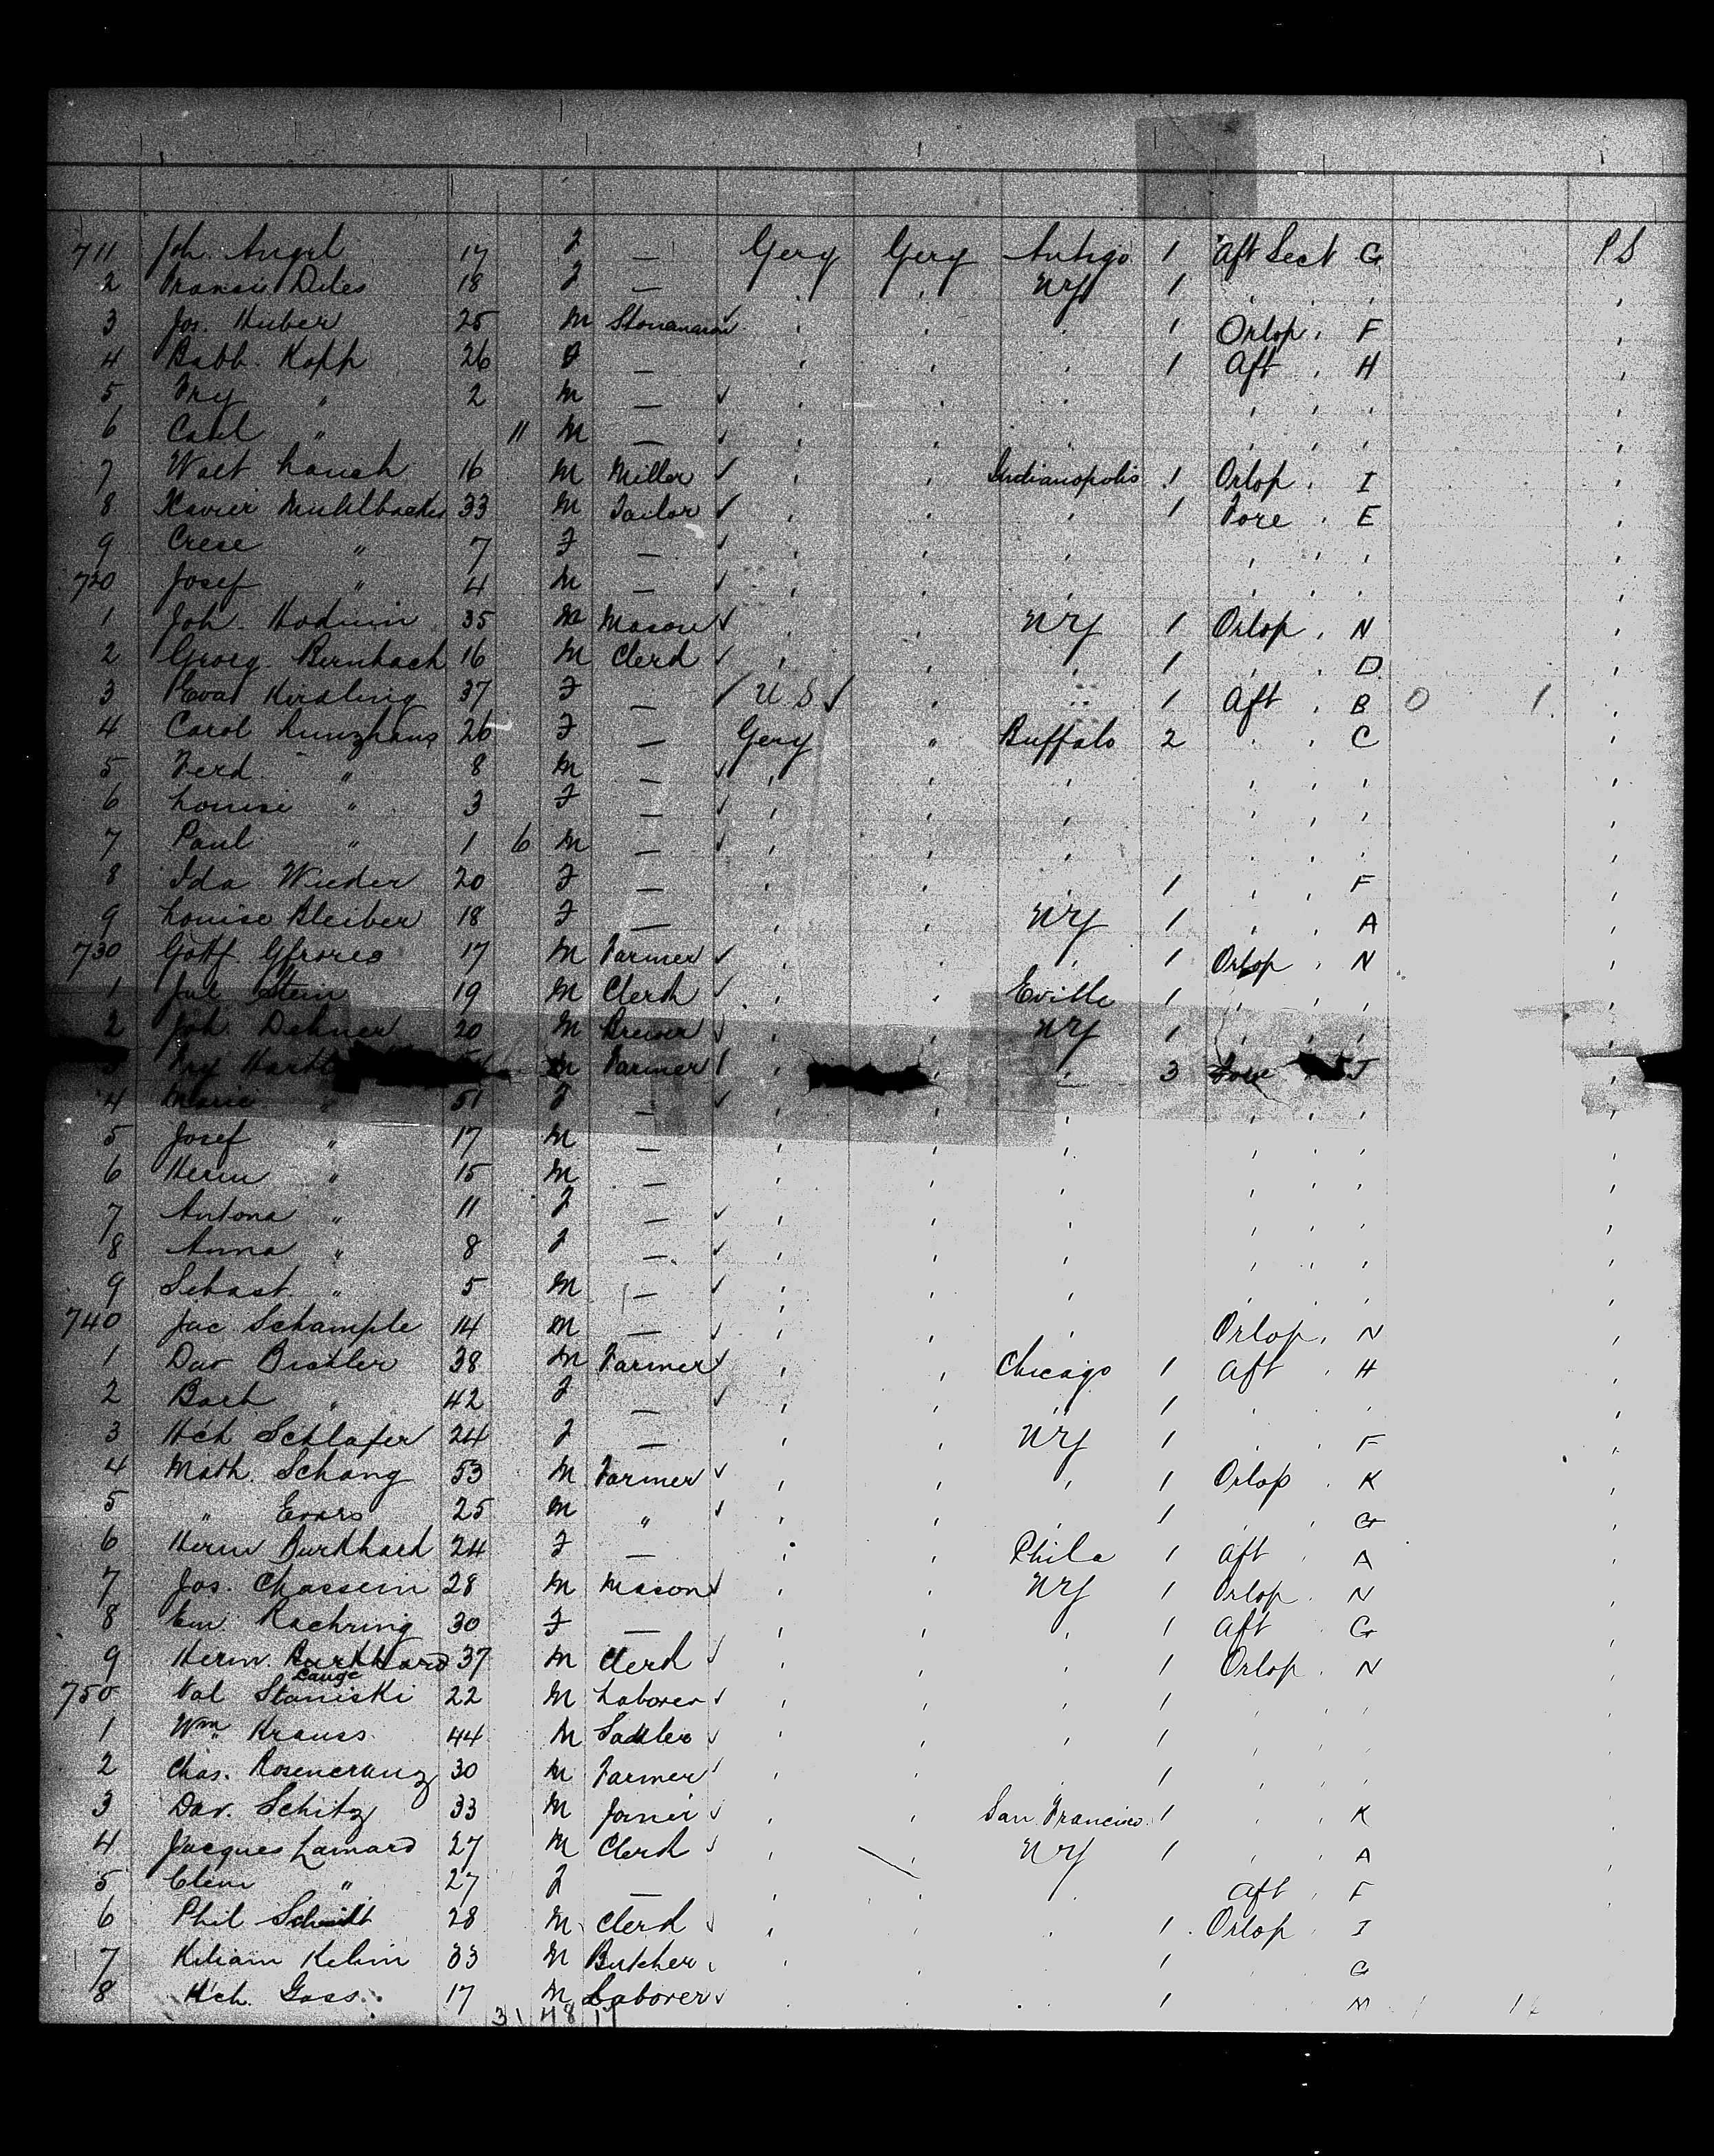 711 Joh. Angel 17 F — Gery Gery Antigo 1 Aft Sect G P S
2 Deles 18 F — " " NY 1 " " "
3 Jos. Huber 25 M Stonemason " " " 1 Orlop " F "
4 Babb. Kopp 26 F — " " " 1 Aft " H "
5 Fry " 2 M — " " " " " " "
6 Carl " 11 M — " " " " " " "
7 Walt Lauch 16 M Miller " " Indianopolis 1 Orlop " I "
8 Xavier Muhlbacher 33 M Tailor " " " 1 Fore " E "
9 Crese " 7 F — " " " " " " "
720 Josef " 4 M — " " " " " " "
1 Joh. 35 M Mason " " NY 1 Orlop " N "
2 Georg. Bernbach 16 M Clerk " " " 1 " " D "
3 Eva Kissling 37 F — U.S " " 1 Aft " B 0 1 "
4 Carol Kunzhaus 26 F — Gery " Buffalo 2 " " C "
5 Ferd " 8 M — " " " " " " "
6 Louise " 3 F — " " " " " " "
7 Paul " 1 6 M — " " " " " " "
8 Ida Wieder 20 F — " " " 1 " " F "
9 Louise Bleiber 18 F — " " NY 1 " " A "
730 Gottf Gfrorer 17 M Farmer " " " 1 Orlop " N "
1 Jul Stein 19 M Clerk " " Eville 1 " " " "
2 Joh. Dehner 20 M Brewer " " NY 1 " " " "
3 Fry M Farmer " " " 3 Fore J "
4 Marie " 51 F — " " " " " " "
5 Josef " 17 M — " " " " " " "
6 Herm " 15 M — " " " " " " "
7 Antona " 11 F — " " " " " " "
8 Anna " 8 F — " " " " " " "
9 Sebast " 5 M — " " " " " " "
740 Jac Schample 14 M — " " " Orlop " N "
1 Dav Bistler 38 M Farmer " " Chicago 1 Aft " H "
2 Barb " 42 F — " " " 1 " " " "
3 Hch Schlafer 24 F — " " NY 1 " " F "
4 Math. Schang 53 M Farmer " " " 1 Orlop " K "
5 " Evars 25 M " " " " 1 " " G "
6 Herm Burkhard 24 F — " " Phila 1 Aft " A "
7 Jos. Chassein 28 M Mason " " NY 1 Orlop " N "
8 Em. Raehring 30 F — " " " 1 Aft " G "
9 Herm. Burkhard 37 M Clerk " " " 1 Orlop " N "
Lange
750 Val Staniski 22 M Laborer " " " 1 " " " "
1 Wm Krauss 44 M Sadler " " " 1 " " " "
2 Chas. Rosencranz 30 M Farmer " " " 1 " " " "
3 Dav. Schitz 33 M Joiner " " San Francisco 1 " " K "
4 Jacques Lamard 27 M Clerk " " NY 1 " " A "
5 Clem " 27 F — " " " Aft " F "
6 Phil Schmitt 28 M Clerk " " " 1 Orlop " I "
7 Kiliam Kelim 33 M Butcher " " " 1 G "
8 Hch. Gass 17 M Laborer " " " 1 M "
31 48 11